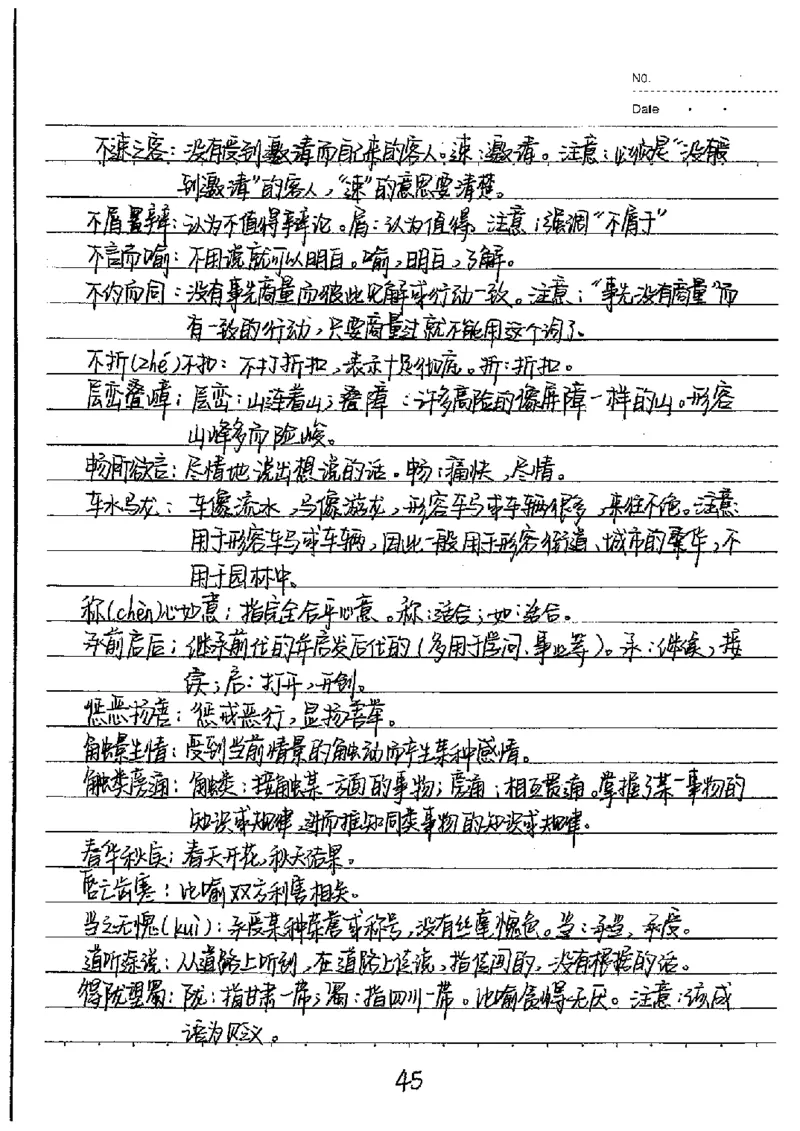 No.
Date
不速之客：没有受到邀请而自己来的客人。速：邀请。注意：必须是“没有受
到邀请”的客人，“速”的意思要清楚。
不屑置辩：认为不值得辩论。屑：认为值得。注意：强调“不屑于”
不言而喻：不用说就可以明白。喻，明白，了解。
不约而同：没有事先商量而彼此见解或行动一致。注意：“事先没有商量”而
有一致的行动，只要商量过就不能用这个词了。
不折(zhé)不扣：不打折扣，表示十足彻底。折：折扣。
层峦叠嶂：层峦：山连着山；叠障：许多高险的像屏障一样的山。形容
山峰多而险峻。
畅所欲言：尽情地说出想说的话。畅：痛快，尽情。
车水马龙：车像流水，马像游龙，形容车马或车辆很多，来往不绝。注意：
用于形容车马或车辆，因此一般用于形容街道、城市的繁华，不
用于园林中。
称(chèn)心如意：指完全合乎心意。称：适合；如：适合。
承前启后：继承前代的并启发后代的(多用于学问、事业等)。承：继续，接
续；启：打开，开创。
惩恶扬善：惩戒恶行，显扬善举。
触景生情：受到当前情景的触动而产生某种感情。
触类旁通：触类：接触某一方面的事物；旁通：相互贯通。掌握了某一事物的
知识或规律，进而推知同类事物的知识或规律。
春华秋实：春天开花，秋天结果。
唇亡齿寒：比喻双方利害相关。
当之无愧(kuì)：承受某种荣誉或称号，没有丝毫愧色。当：承当，承受。
道听途说：从道路上听到，在道路上谈说，指传闻的，没有根据的话。
得陇望蜀：陇：指甘肃一带；蜀：指四川一带。比喻贪得无厌。注意：该成
语为贬义。
45